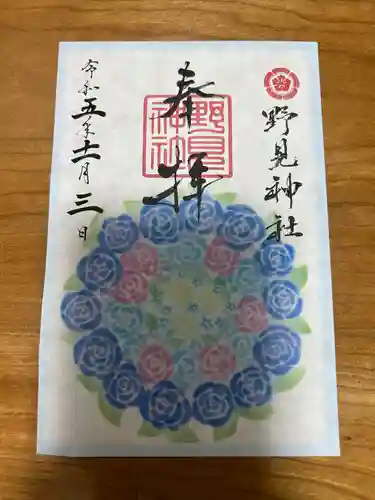 野見神社
奉拝
野見
神社
令和五年十一月三日